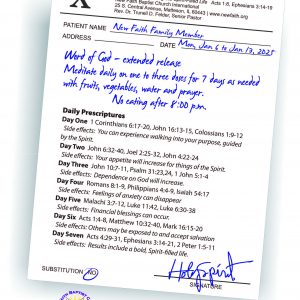 X
New Faith Baptist Church International
25 S. Central Avenue, Matteson, IL 60443 | www.newfaith.org
Rev. Dr. Trunell D. Felder, Senior Pastor
Acts 1:8, Ephesians 3:14-19
PATIENT NAME New Faith Family Member
ADDRESS DATE Mon, Jan 6 to Jan 13, 2025
Word of God - extended release
Meditate daily on one to three doses for 7 days as needed
with fruits, vegetables, water and prayer.
No eating after 8:00 p.m.
Daily Prescriptures
Day One 1 Corinthians 6:17-20, John 16:13-15, Colossians 1:9-12
Side effects: You can experience walking into your purpose, guided
by the Spirit.
Day Two John 6:32-40, Joel 2:25-32, John 4:22-24
Side effects: Your appetite will increase for things of the Spirit.
Day Three John 10:7-11, Psalm 31:23,24, 1 John 5:1-4
Side effects: Dependence on God will increase.
Day Four Romans 8:1-9, Philippians 4:4-9, Isaiah 54:17
Side effects: Feelings of anxiety can disappear
Day Five Malachi 3:7-12, Luke 11:42, Luke 6:30-38
Side effects: Financial blessings can occur.
Day Six Acts 1:4-8, Matthew 10:24-33, Mark 16:15-18
Side effects: Others may be exposed to and accept salvation
Day Seven Acts 4:29-31, Ephesians 3:14-21, 2 Peter 1:5-11
Side effects: Results include a bold, Spirit-filled life.
SUBSTITUTION NO
Holy Spirit
SIGNATURE